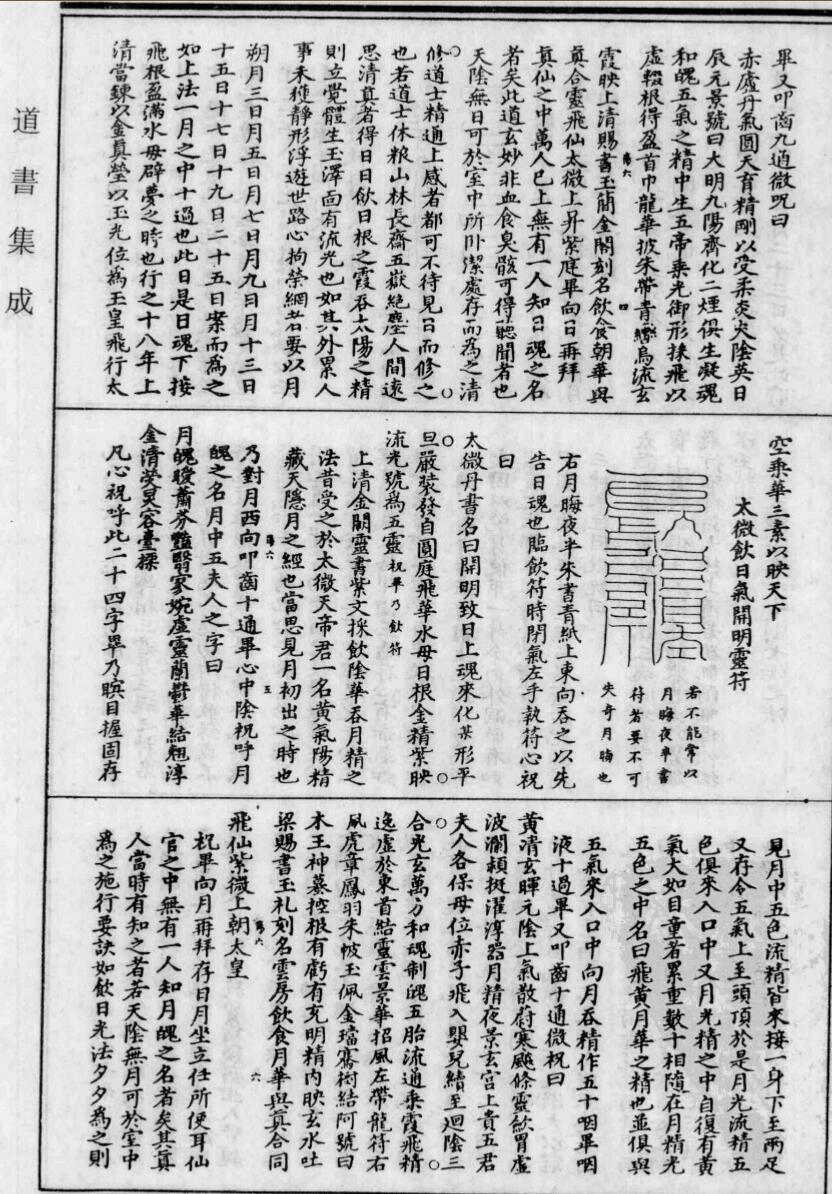 道書集成
畢又叩齒九通微呪曰
赤廬丹氣圓天育精剛以受柔炎火陰英日
辰元景號曰大明九陽齊化二煙俱生凝魂
和魄五氣之精中生五帝乘光御形採飛以
虛輟根得盈首巾龍華披朱帶青轡烏流玄
霞映上清賜書玉簡金閣刻名飲食朝華與
真合靈飛仙太微上昇紫庭畢向日再拜
真仙之中萬人已上無有一人知日魂之名
者矣此道玄妙非血食臭骸可得聽聞者也
天陰無日可於室中所卧潔處存而為之清
修道士精通上感者都可不待見日而修之
也若道士休粮山林長齋五嶽絕塵人間遠
思清真者得日日飲日根之霞吞太陽之精
則立覺體生玉澤面有流光也如其外累人
事未獲靜形浮遊世路心拘榮網者要以月
朔月三日月五日月七日月九日月十三日
十五日十七日十九日二十五日案而為之
如上法一月之中十過也此日是日魂下接
飛根盈滿水母辟夢之時也行之十八年上
清當鍊以金真瑩以玉光位為玉皇飛行太
空乘華三素以映天下
太微飲日氣開明靈符
若不能常以
月晦夜半書
符若要不可
失奇月晦也
右月晦夜半朱書青紙上東向吞之以先
告日魂也臨飲符時閉氣左手執符心祝
曰
太微丹書名曰開明致日上魂來化某形平
旦嚴裝發自圓庭飛華水母日根金精紫映
流光號為五靈祝畢乃飲符
上清金闕靈書紫文採飲陰華吞月精之
法昔受之於太微天帝君一名黃氣陽精
藏天隱月之經也當思見月初出之時也
乃對月西向叩齒十通畢心中陰祝呼月
魄之名月中五夫人之字曰
月魄曖蕭芬豔翳寥婉虛靈蘭鬱華結翹淳
金清瑩炅容臺摽
凡心祝呼此二十四字畢乃瞑目握固存
見月中五色流精皆來接一身下至兩足
又存令五氣上至頭頂於是月光流精五
色俱來入口中又月光精之中自復有黃
氣大如目童者累重數十相隨在月精光
五色之中名曰飛黃月華之精也並俱與
五氣來入口中向月吞精作五十咽畢咽
液十過畢又叩齒十通微祝曰
黃清玄暉元陰上氣散蔚寒飈條靈歛胃虛
波瀾頻挺濯淳器月精夜景玄宮上貴五君
夫人各保母位赤子飛入嬰兒續至迴陰三
合光玄萬方和魂制魄五胎流通乘霞飛精
逸虛於東首結靈雲景華招風左帶龍符右
佩虎章鳳羽朱帔玉佩金璫騫樹結阿號曰
木王神蟇控根有虧有充明精內映玄水吐
梁賜書玉札刻名雲房飲食月華與真合同
飛仙紫微上朝太皇
祝畢向月再拜存日月坐立任所便耳仙
官之中無有一人知月魄之名者矣其真
人當時有知之者若天陰無月可於室中
為之施行要訣如飲日光法夕夕為之則